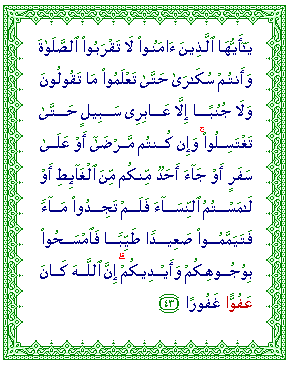 يَـٰٓأَيُّهَا ٱلَّذِينَ ءَامَنُوا۟ لَا تَقْرَبُوا۟ ٱلصَّلَوٰةَ
وَأَنتُمْ سُكَـٰرَىٰ حَتَّىٰ تَعْلَمُوا۟ مَا تَقُولُونَ
وَلَا جُنُبًا إِلَّا عَابِرِى سَبِيلٍ حَتَّىٰ
تَغْتَسِلُوا۟ ۚ وَإِن كُنتُم مَّرْضَىٰٓ أَوْ عَلَىٰ
سَفَرٍ أَوْ جَآءَ أَحَدٌ مِّنكُم مِّنَ ٱلْغَآئِطِ أَوْ
لَـٰمَسْتُمُ ٱلنِّسَآءَ فَلَمْ تَجِدُوا۟ مَآءً
فَتَيَمَّمُوا۟ صَعِيدًا طَيِّبًا فَٱمْسَحُوا۟
بِوُجُوهِكُمْ وَأَيْدِيكُمْ ۗ إِنَّ ٱللَّهَ كَانَ
عَفُوًّا غَفُورًا ٤٣